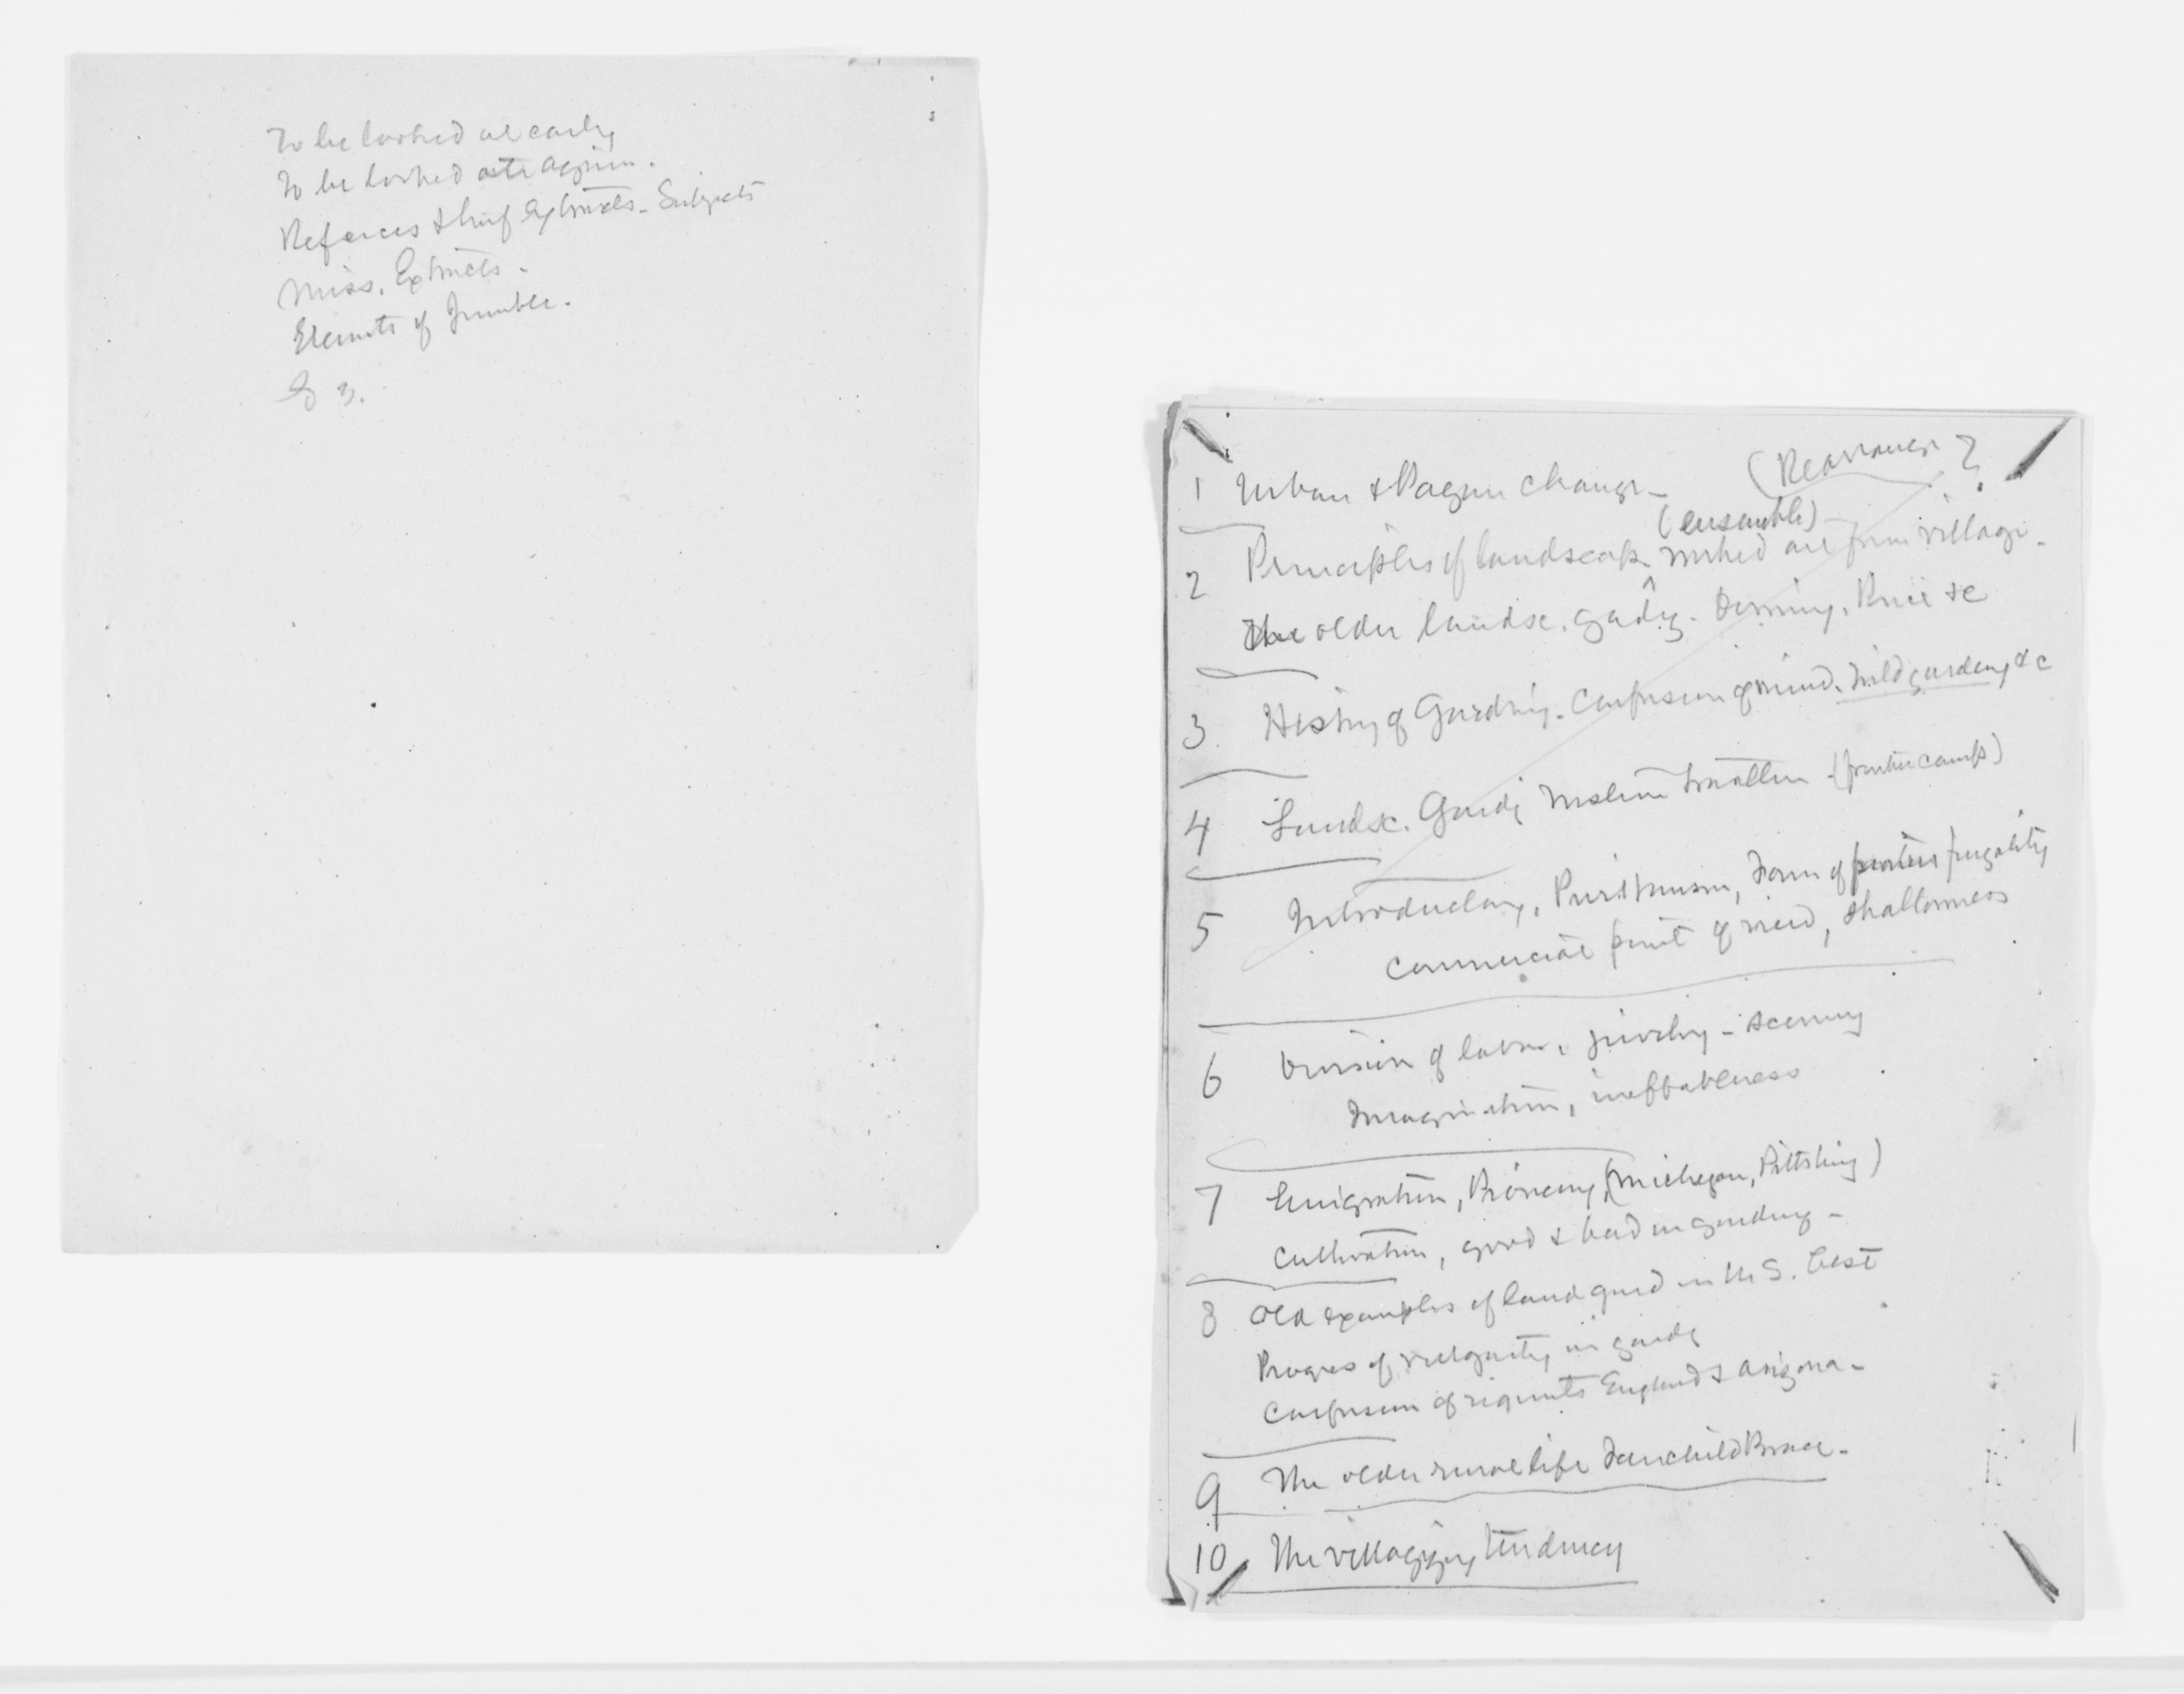 To be looked at early
To be looked at again.
Refences & brief Extracts - Subjects
Miss. Extracts -
Elemnts of
1 Urban & Pagan Change - (Rearrange ?
(ensemble)
2 Principles of landscape worked out from village -
The older landsc. gardg. Price &c
3 History of Gardning - Confusion of mind. Wild gardeng &c
4 Landsc. Gardg (frontier camp)
5 Introductory, Puritanism, Form of frugality
Commercial point of view, shallowness
6 Division of labor, - scenery
Imagination, ineffableness
7 Emigration, Pioneering, (Michegan, Pittsburg)
Cultivation, good & bad in gardeng -
8 Old examples of land gard in U S. best
Progres of vulgarity in gardg
Confusion of England & Arizona -
9 The older rural life Fairchild Brace -
10 The villagizing tendency